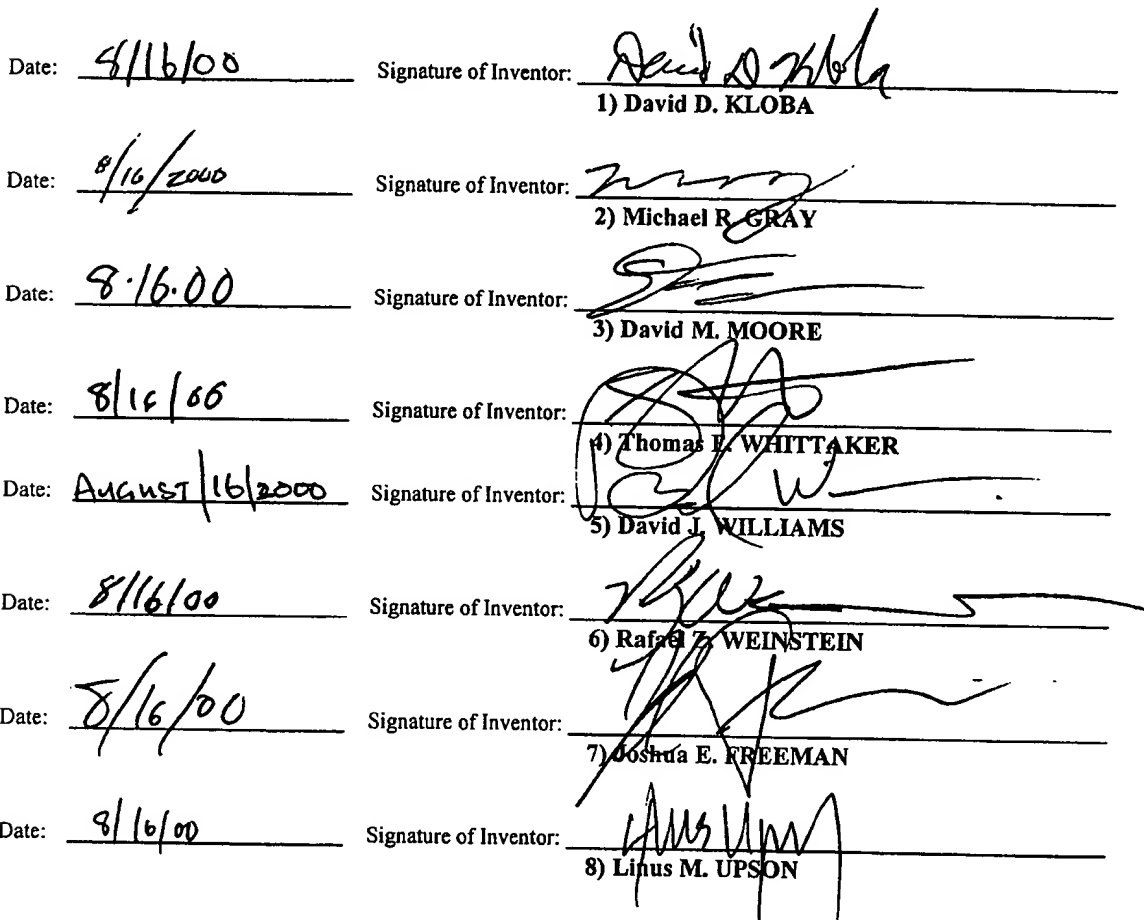 Date: 8/16/00 Signature of Inventor: David D Kloba
1) David D. KLOBA
Date: 8/16/2000 Signature of Inventor:
2) Michael R. GRAY
Date: 8.16.00 Signature of Inventor:
3) David M. MOORE
Date: 8/16/00 Signature of Inventor:
4) Thomas E. WHITTAKER
Date: AUGUST/16/2000 Signature of Inventor:
5) David J. WILLIAMS
Date: 8/16/00 Signature of Inventor:
6) Rafael Z. WEINSTEIN
Date: 8/16/00 Signature of Inventor:
7) Joshua E. FREEMAN
Date: 8/16/00 Signature of Inventor: Linus Upson
8) Linus M. UPSON